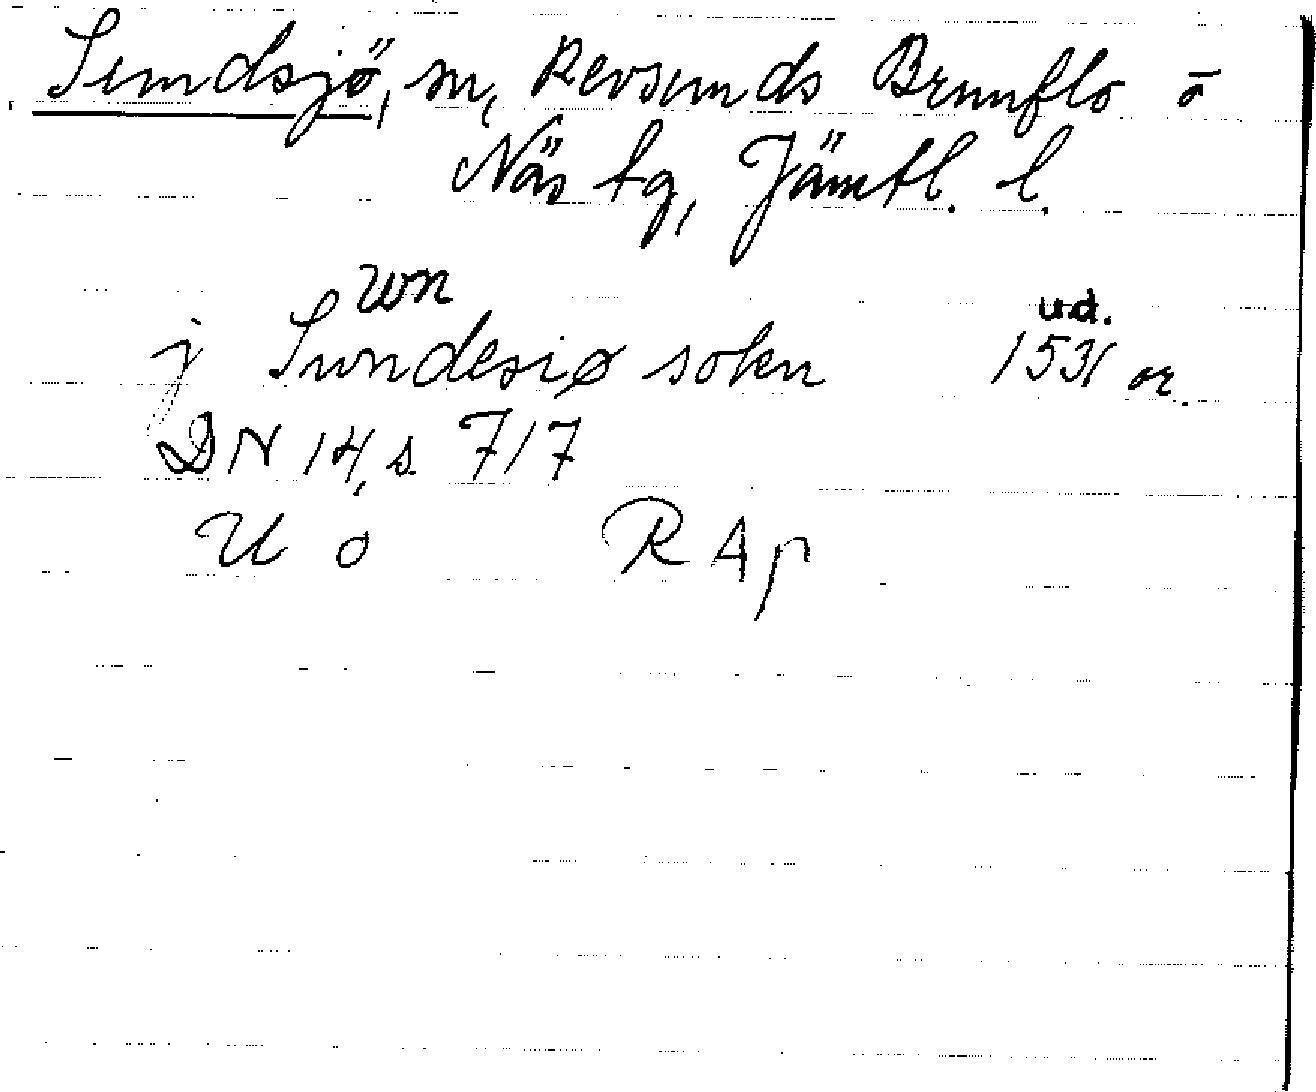 Sundsjö, sn, Revsunds Brunflo o
Näs tg, Jämtl. l.
wn
j Swndesiø sokn 1531 or.
u.d.
DN 14, s 717
U o RAp